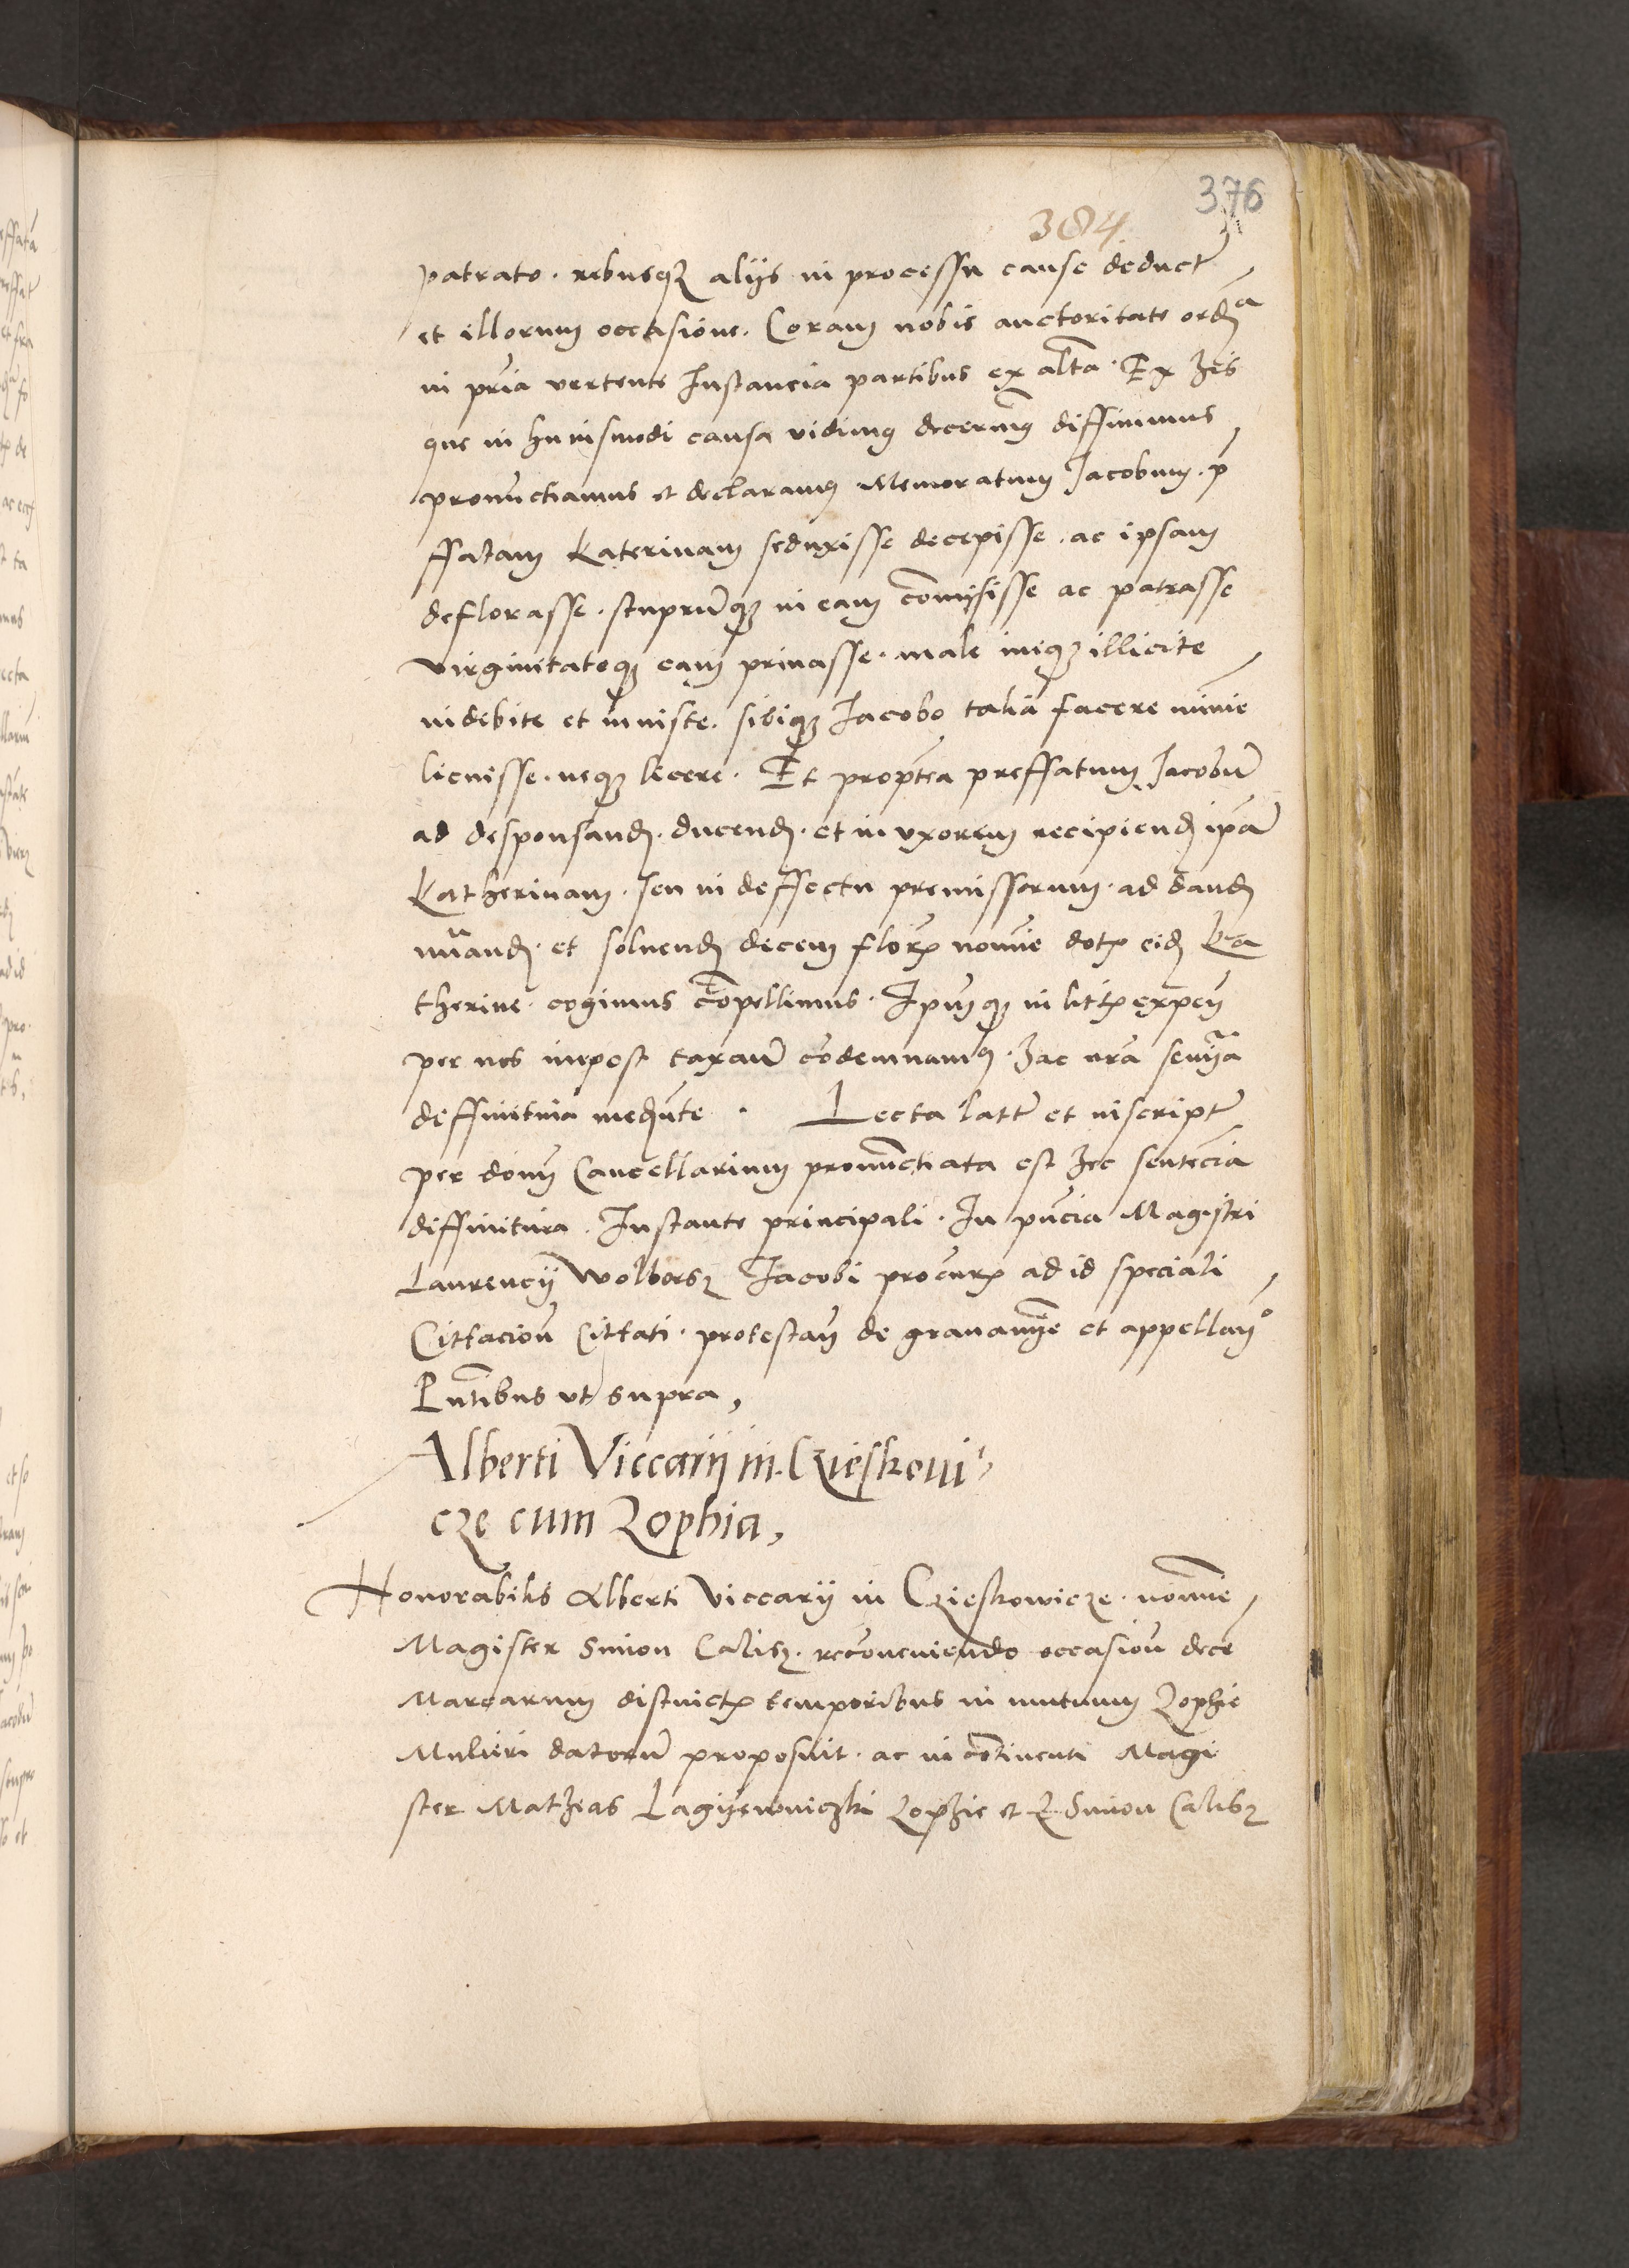 376
384
patrato. rebusq3 alijs in processu cause deduct
et illorum occasione. Coram nobis auctoritate ordia
in pria vertente Instancia partibus ex alta. Ex hiis
que in huiusmodi causa vidimus decernimus diffinimus
pronunctiamus et declaramus Memoratum Jacobum. p
ffatam Katerinam seduxisse decepisse. ac ipsam
deflorasse. stuprūq3 in eam cōmisisse ac patrasse
virginitateq3 eam priuasse. male iniq3 illicite
indebite et iniuste. sibiq3 Jacobo talia facere minīe
licuisse. neq3 licere. Et propterea preffatum Jacobū
ad desponsand. ducend. et in vxorem recipiend ipā
Katherinam. seu in deffectu premissorum. ad dand
nūand. et soluend decem flor noīe dot eid Ka
therine. cogimus cōpellimus. Ipūq3 in lit expen
per nos impost taxanū cōdemnamus. hac nra senīa
deffinitiua mediante. Lecta latt et in script
per donū Cancellarium pronunctiata est hec sentēcia
diffinitiua. Instante principali. In pn̄cia Magistri
Laurencij Wolbors Jacobi procur ad id speciali
Cittacioū Cittati. protestan de grauamīe et appellano
Pn̄tibus vt supra,
Alberti Viccarij in. Czieskoui
cze cum Zophia,
Honorabilis Alberti Viccarij in Czieskowicze. noīe
Magister Simon Calis. recōueniendo occasioū decē
Marcarum distinct temporibus in mutuum Zophie
Mulieri datorū proposuit. ac in cōtinenti Magi
ster Mathias Lagyewniczki Zophie et Simon Calis